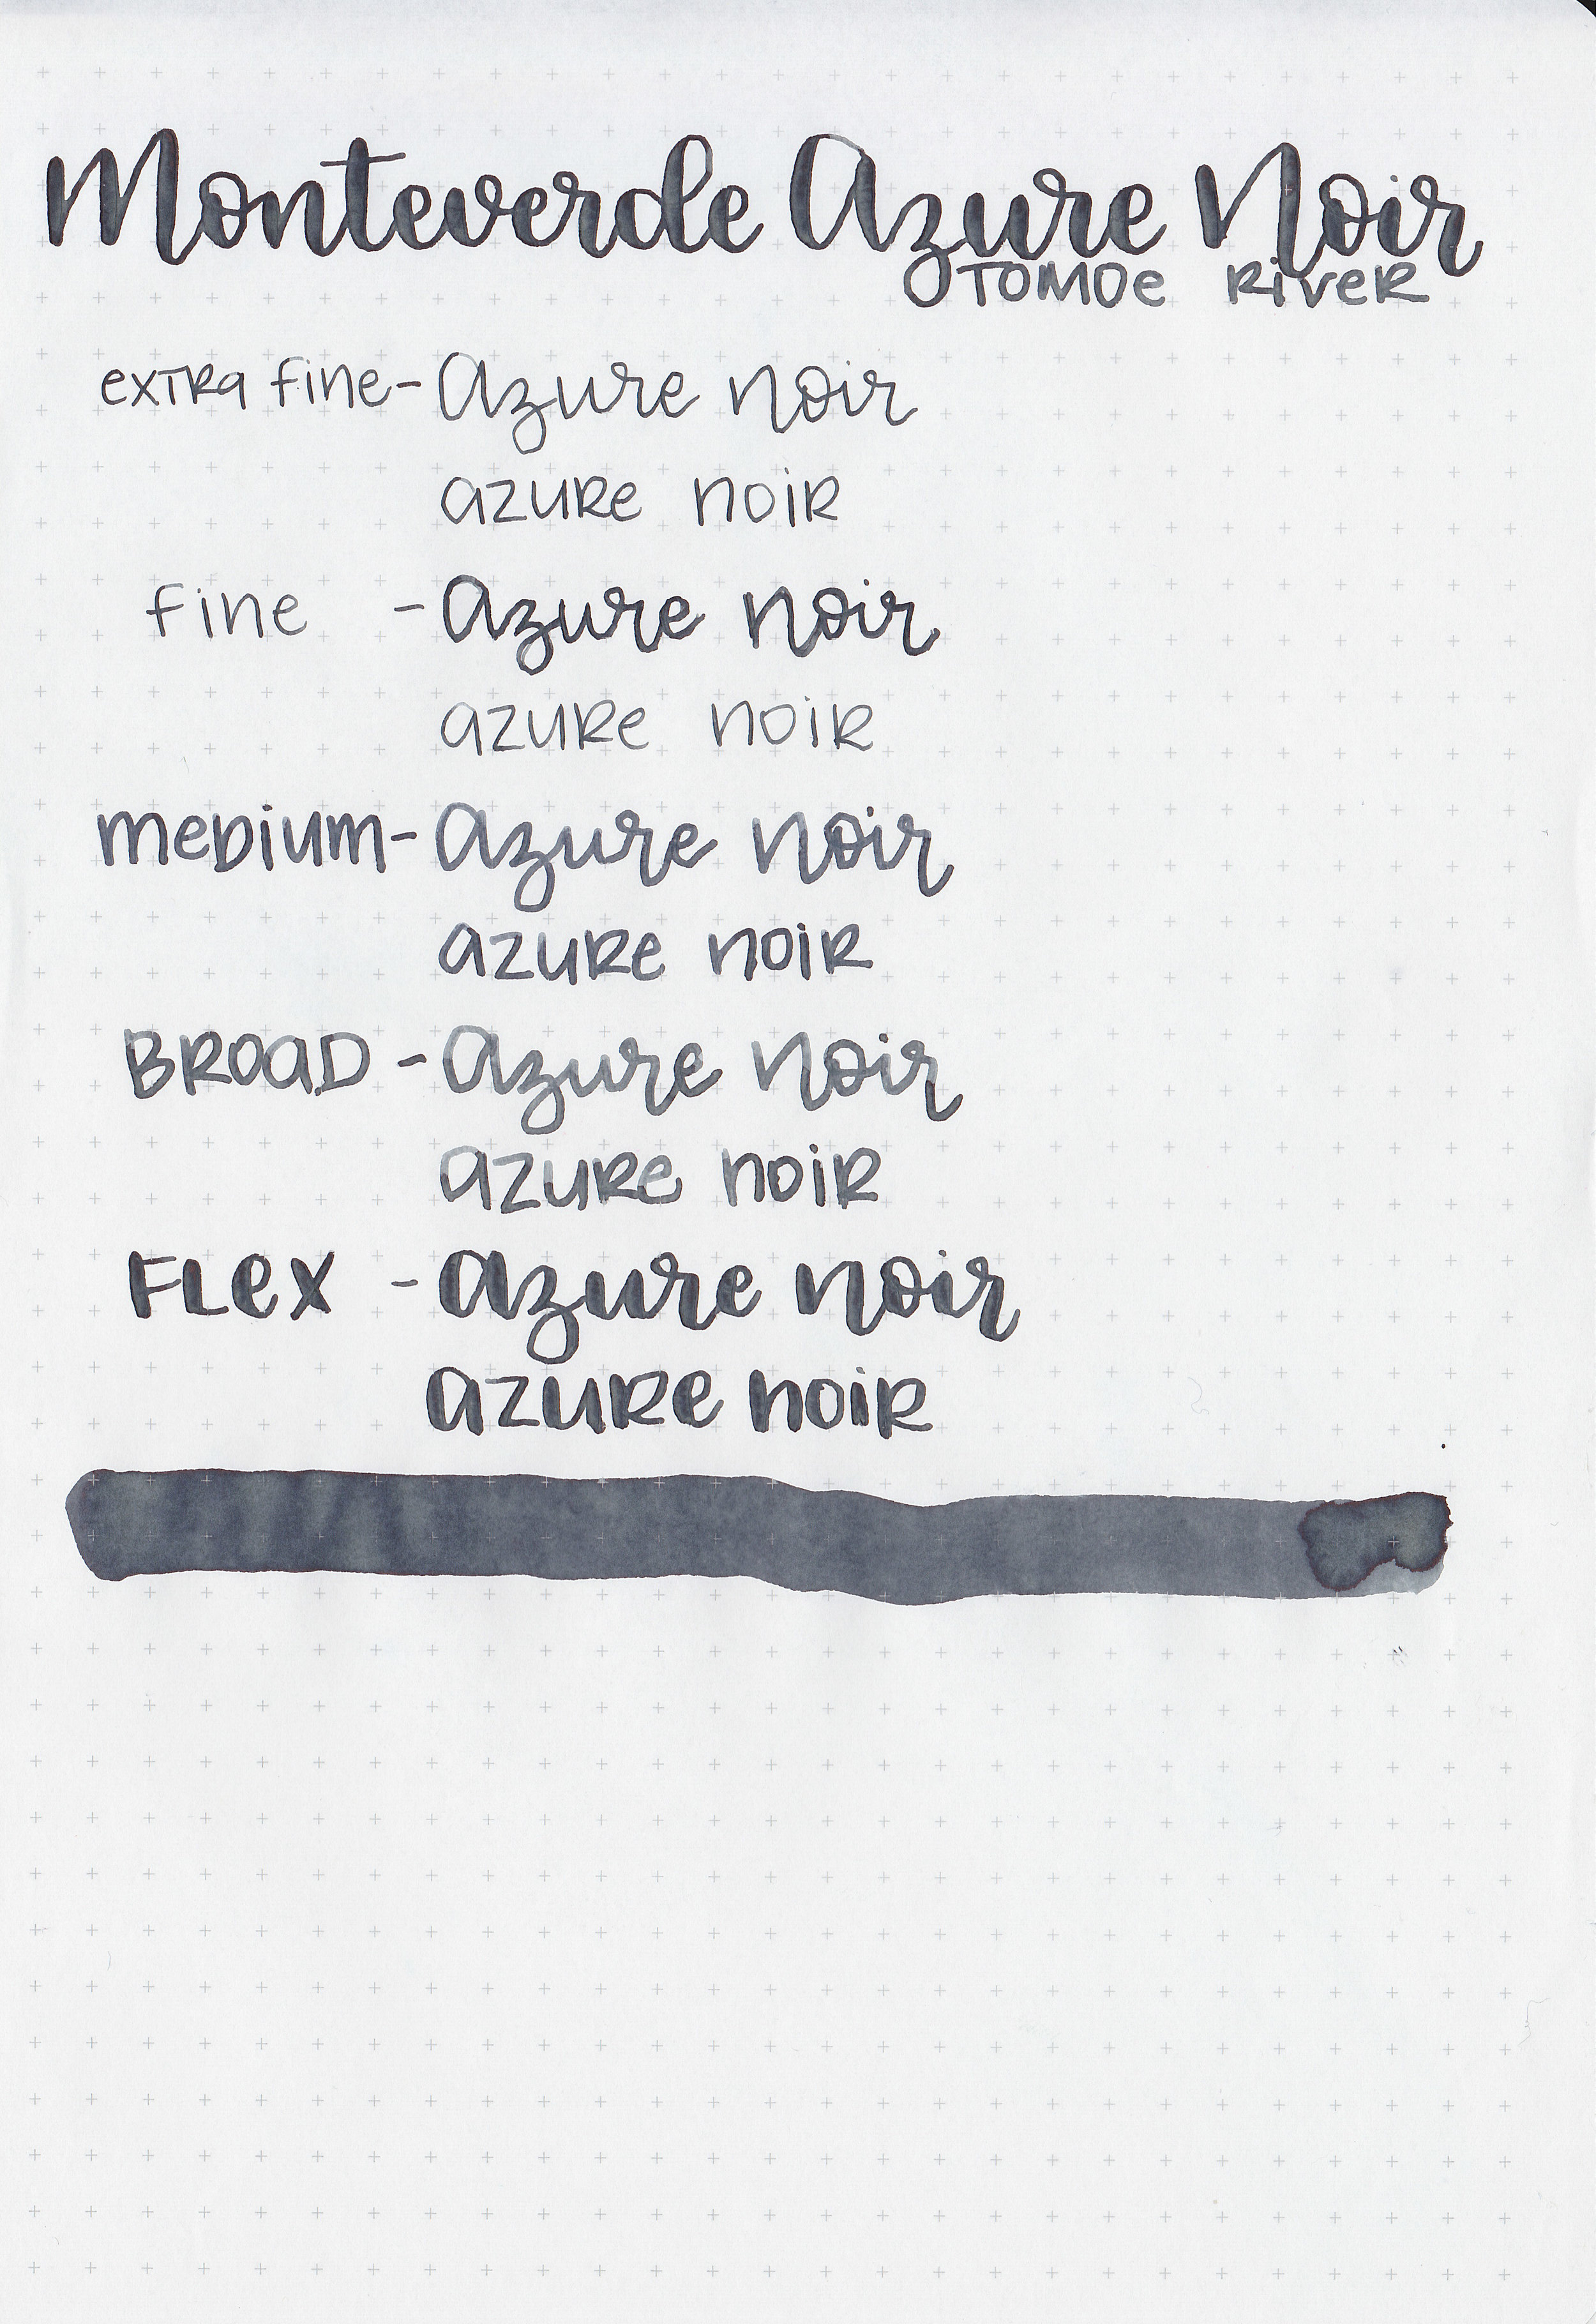 Monteverde Azure Noir
TOMOe RiveR
exTRa fine - Azure noir
azuRe noiR
fine - Azure noir
azuRe noiR
meDium - Azure noir
azuRe noiR
BROaD - Azure noir
azuRe noiR
FLex - Azure noir
azuRe noiR